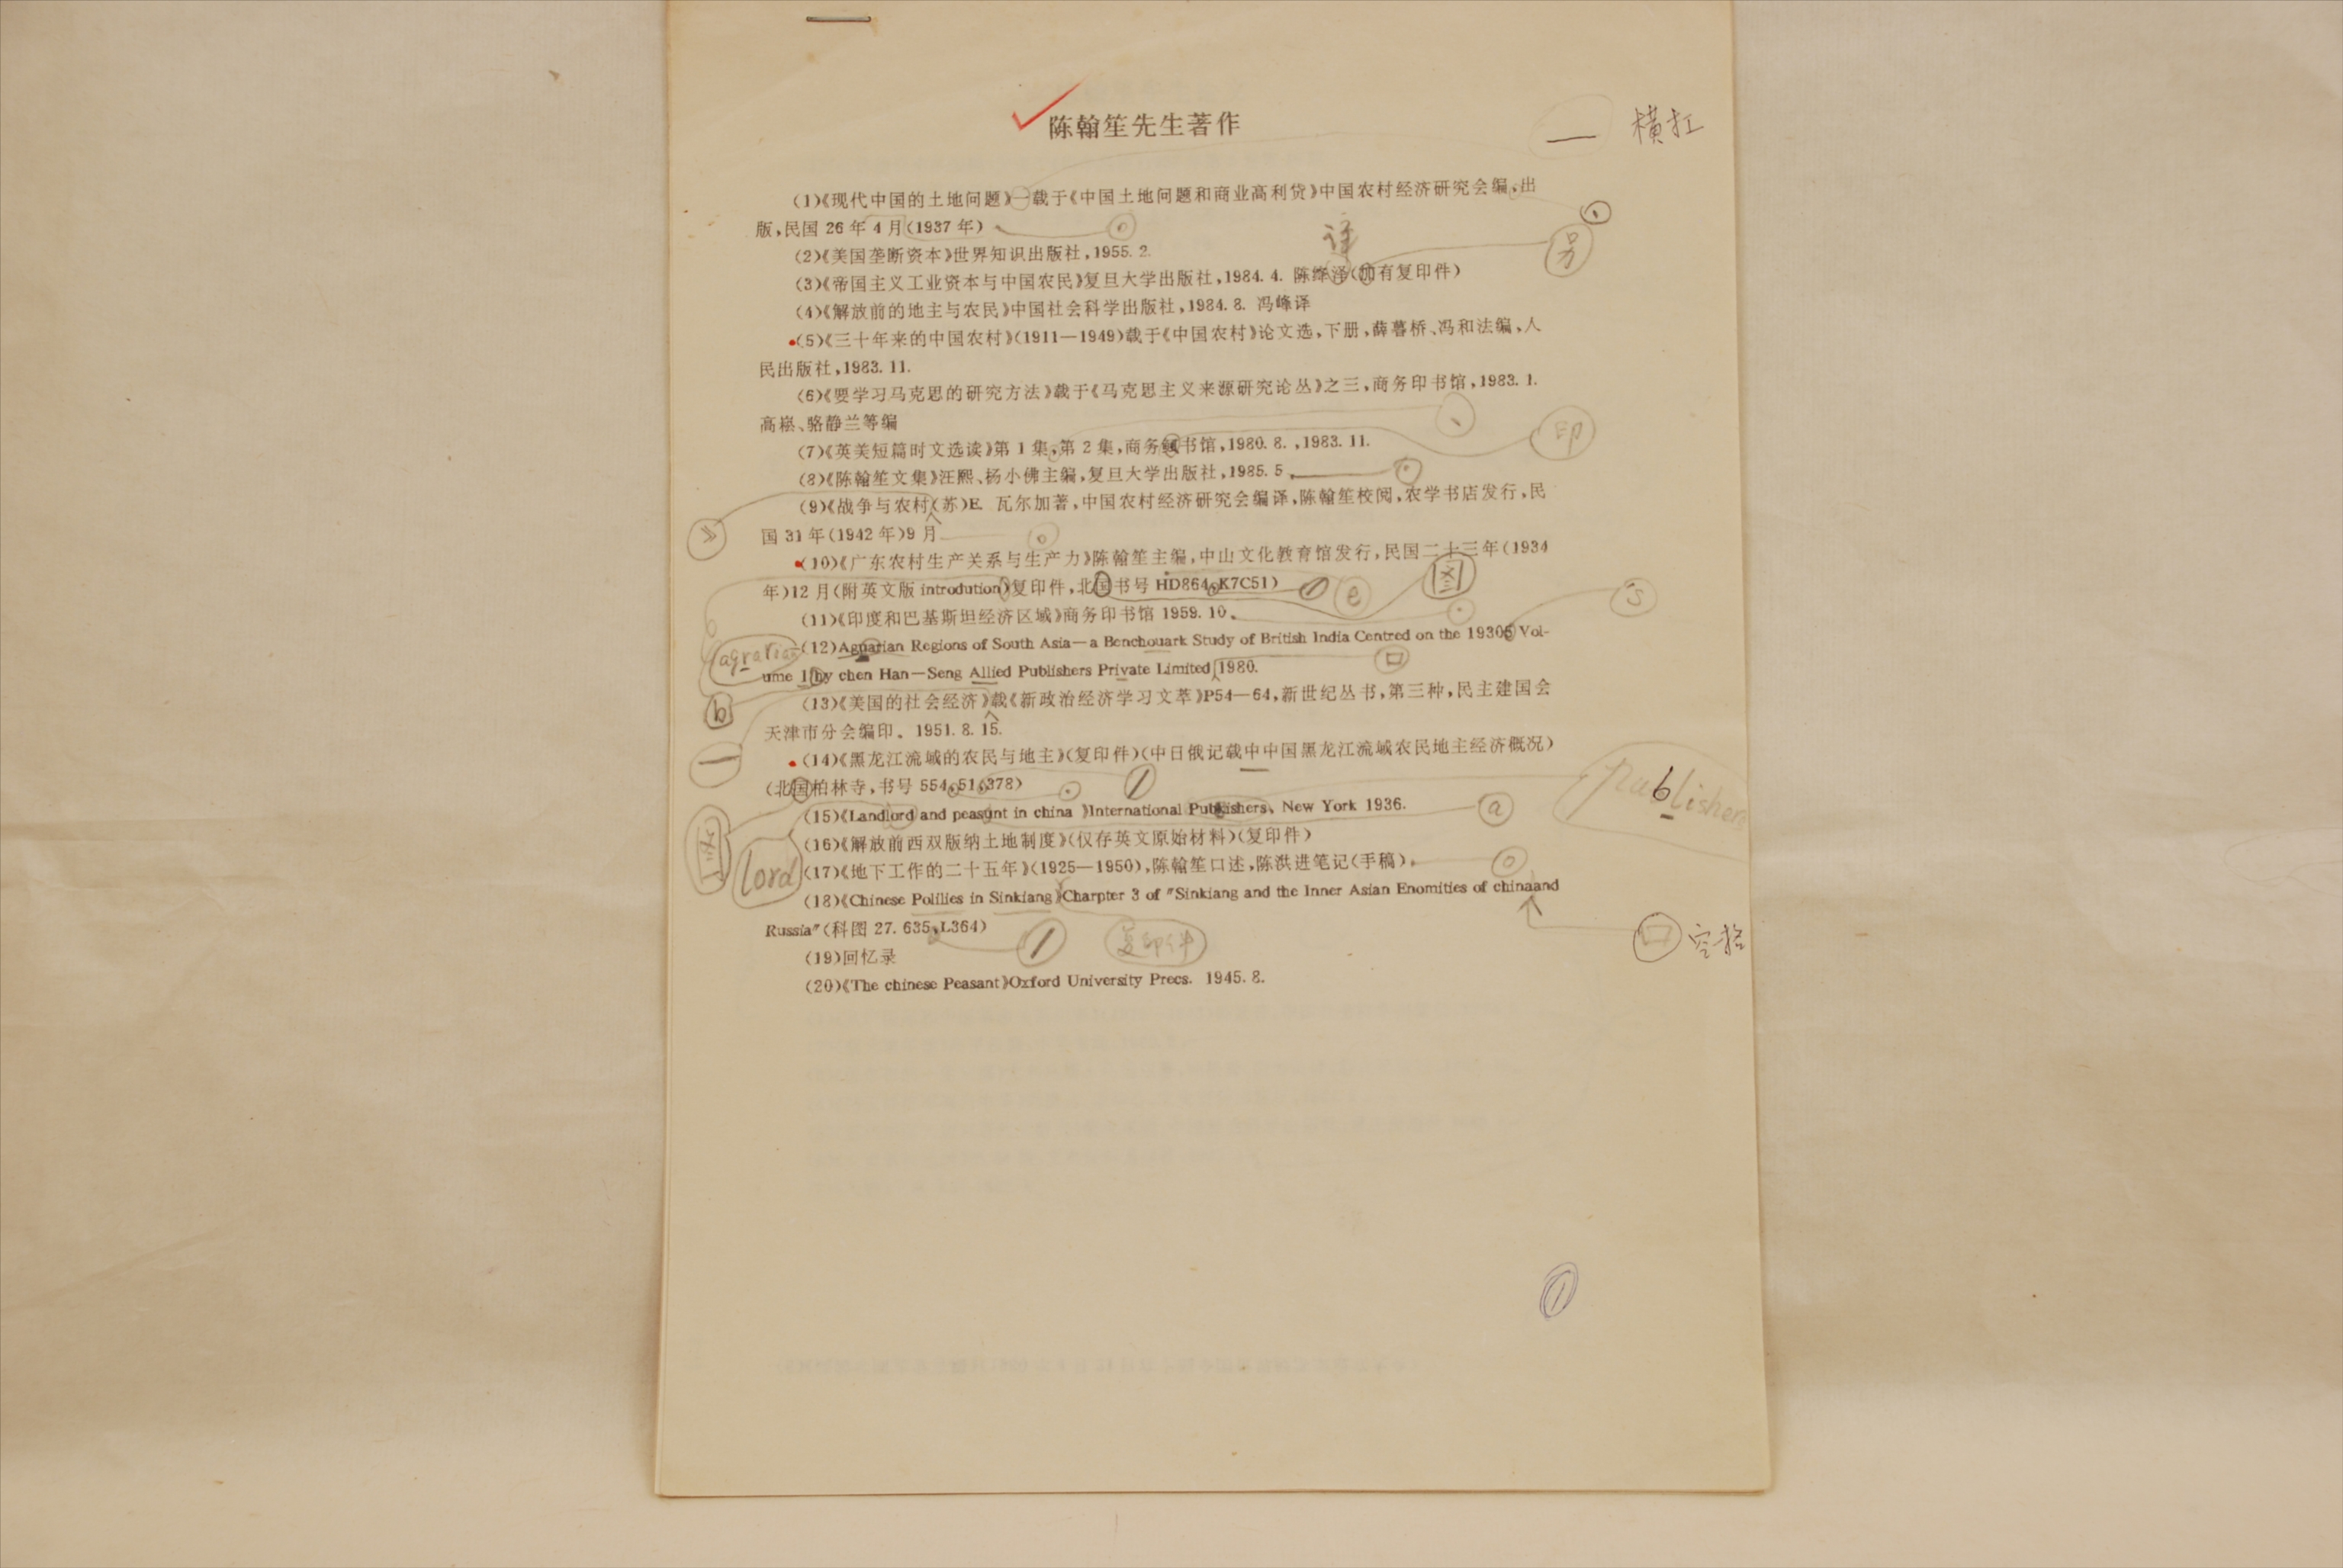 陈翰笙先生著作
一 横扛
(1)《现代中国的土地问题》一载于《中国土地问题和商业高利贷》中国农村经济研究会编、出
版,民国 26 年 4 月(1937 年)
译
另
(2)《美国垄断资本》世界知识出版社,1955. 2.
(3)《帝国主义工业资本与中国农民》复旦大学出版社,1984. 4. 陈绛泽(加有复印件)
(4)《解放前的地主与农民》中国社会科学出版社,1984. 8. 冯峰译
(5)《三十年来的中国农村》(1911—1949)载于《中国农村》论文选,下册,薛暮桥、冯和法编、人
民出版社,1983. 11.
(6)《要学习马克思的研究方法》载于《马克思主义来源研究论丛》之三,商务印书馆,1983. 1.
高崧、骆静兰等编
印
(7)《英美短篇时文选读》第 1 集,第 2 集,商务书馆,1980. 8. ,1983. 11.
(8)《陈翰笙文集》汪熙、杨小佛主编,复旦大学出版社,1985. 5
(9)《战争与农村(苏)E. 瓦尔加著,中国农村经济研究会编译,陈翰笙校阅,农学书店发行,民
》
国 31 年(1942 年)9 月
(10)《广东农村生产关系与生产力》陈翰笙主编,中山文化教育馆发行,民国二十三年(1934
年)12 月(附英文版 introdution)复印件,北国书号 HD864,K7C51)
e
图
s
(11)《印度和巴基斯坦经济区域》商务印书馆 1959. 10.
agrarian
(12)Agnarian Regions of South Asia—a Benchouark Study of British India Centred on the 19305 Vol-
ume 1 hy chen Han—Seng Allied Publishers Private Limited 1980.
b
(13)《美国的社会经济》载《新政治经济学习文萃》P54—64,新世纪丛书,第三种,民主建国会
天津市分会编印。1951. 8. 15.
一
(14)《黑龙江流域的农民与地主》(复印件)(中日俄记载中中国黑龙江流域农民地主经济概况)
(北国柏林寺,书号 554,51,378)
publishers
(15)《Landlord and peasunt in china 》International Publishers, New York 1936.
a
图
lord
(16)《解放前西双版纳土地制度》(仅存英文原始材料)(复印件)
(17)《地下工作的二十五年》(1925—1950),陈翰笙口述,陈洪进笔记(手稿).
(18)《Chinese Polilies in Sinkiang》Charpter 3 of "Sinkiang and the Inner Asian Enomities of chinaand
Russia"(科图 27. 635,L364)
复印件
空格
(19)回忆录
(20)《The chinese Peasant》Oxford University Precs. 1945. 8.
1